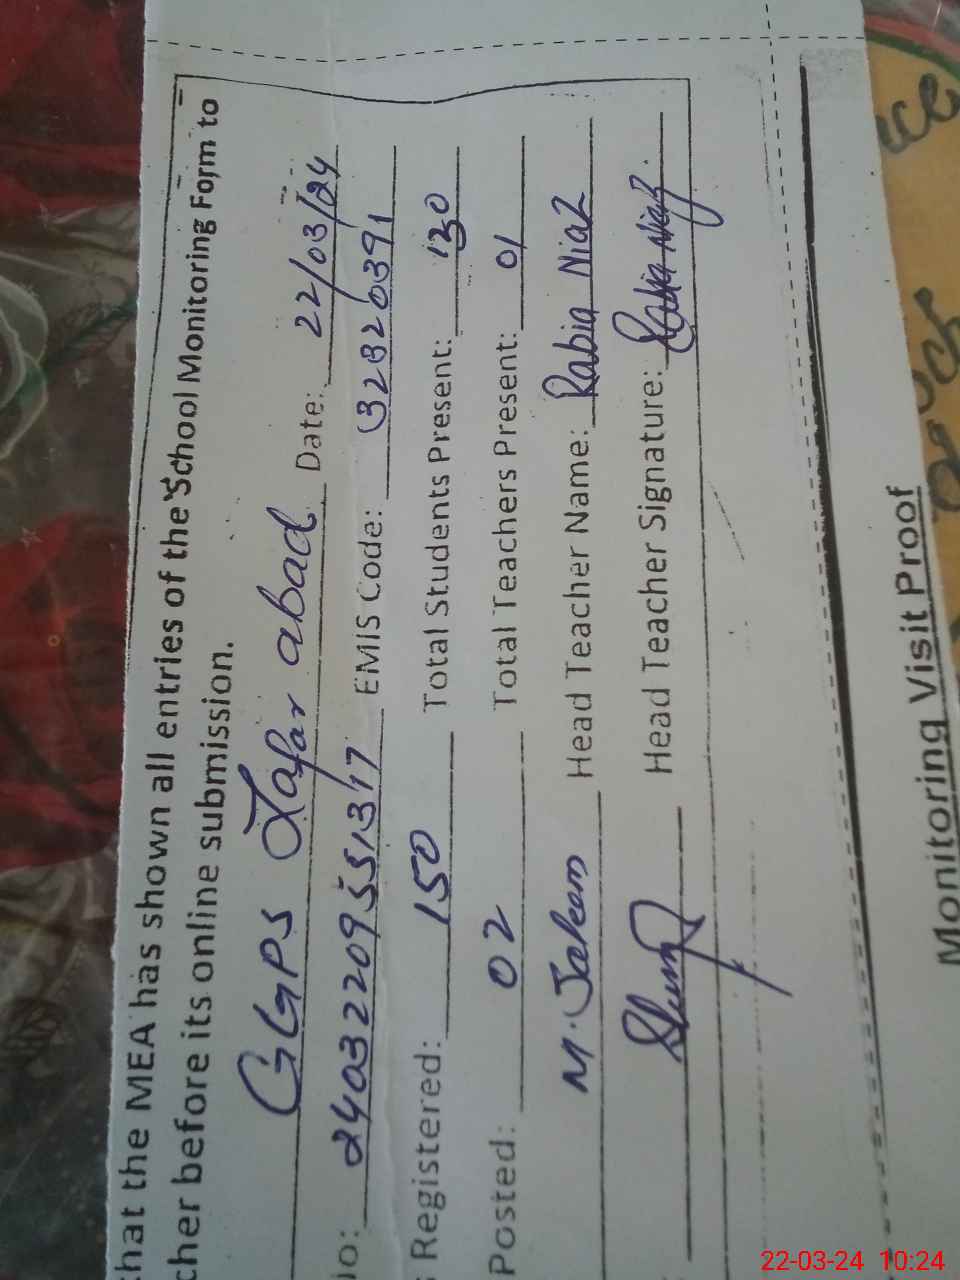 that the MEA has shown all entries of the School Monitoring Form to
cher before its online submission.
GGPS Zafar abad Date: 22/03/24
No: 24032209551317 EMIS Code: 32320391
Registered: 150 Total Students Present: 130
Posted: 02 Total Teachers Present: 01
M. Saleem Head Teacher Name: Rabia Niaz
Head Teacher Signature: Rabia Niaz
Monitoring Visit Proof
22-03-24 10:24